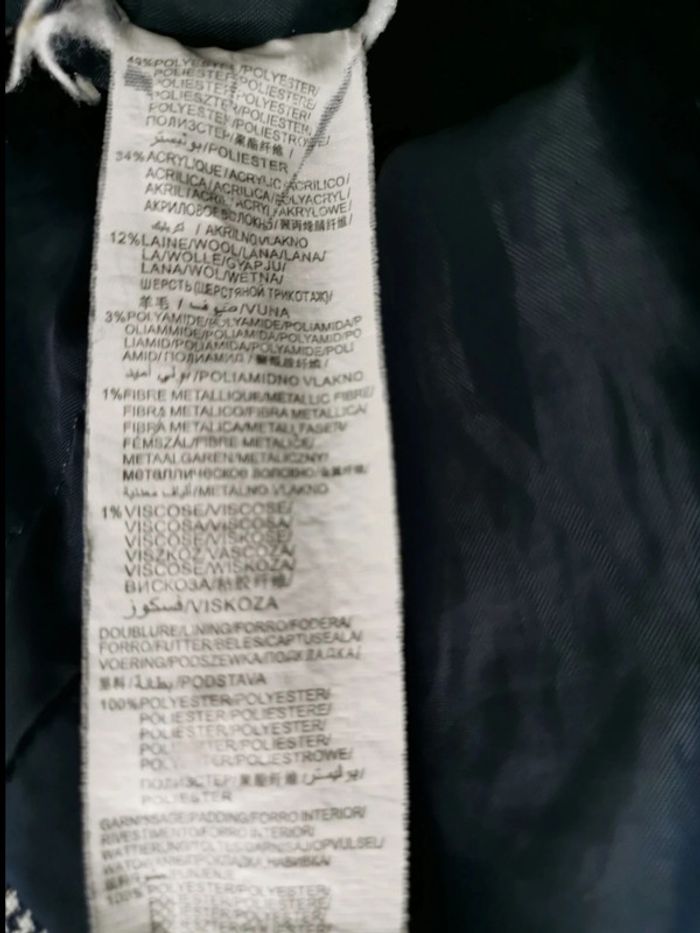 49%POLYESTER/POLYESTER/
POLIESTER/POLIESTERE/
POLIESTER/POLYESTER/
POLIESZTER/POLIESTER/
POLYESTER/POLIESTROWE/
ПОЛИЭСТЕР/聚酯纤维/
بوليستر/POLIESTER
34%ACRYLIQUE/ACRYLIC/ACRILICO/
ACRILICA/ACRILICA/POLYACRYL/
AKRIL/ACRYL/AKRYLOWE/
АКРИЛОВОЕ ВОЛОКНО/聚丙烯腈纤维/
اكريليك / AKRILNO VLAKNO
12%LAINE/WOOL/LANA/LANA/
LA/WOLLE/GYAPJU/
LANA/WOL/WEŁNA/
ШЕРСТЬ(ШЕРСТЯНОЙ ТРИКОТАЖ)/
羊毛 / صوف/VUNA
3%POLYAMIDE/POLYAMIDE/POLIAMIDA/P
OLIAMMIDE/POLIAMIDA/POLYAMID/PO
LIAMID/POLIAMIDA/POLYAMIDE/POLI
AMID/ПОЛИАМИД / 聚酰胺纤维/
بولي أميد /POLIAMIDNO VLAKNO
1%FIBRE METALLIQUE/METALLIC FIBRE/
FIBRA METALICO/FIBRA METALLICA/
FIBRA METALICA/METALLFASER/
FÉMSZÁL/FIBRE METALICE/
METAALGAREN/METALICZNY/
металлическое волокно/金属纤维/
ألياف معدنية/METALNO VLAKNO
1%VISCOSE/VISCOSE/
VISCOSA/VISCOSA/
VISCOSE/VISKOSE/
VISZKÓZ/VASCOZA/
VISCOSE/WISKOZA/
ВИСКОЗА/粘胶纤维/
فسكوز/VISKOZA
DOUBLURE/LINING/FORRO/FODERA/
FORRO/FUTTER/BELES/CAPTUSEALA/
VOERING/PODSZEWKA/ПОДКЛАДКА/
里料/بطانة/PODSTAVA
100%POLYESTER/POLYESTER/
POLIESTER/POLIESTERE/
POLIESTER/POLYESTER/
POL TER/POLIESTER/
POL TER/POLIESTROWE/
ПОЛИЭСТЕР/聚酯纤维/بوليستر/
POLIESTER
GARNISSAGE/PADDING/FORRO INTERIOR/
RIVESTIMENTO/FORRO INTERIOR/
PUNJENJE
100%POLYESTER/POLYESTER/
POLIESTER/POLIESTERE/